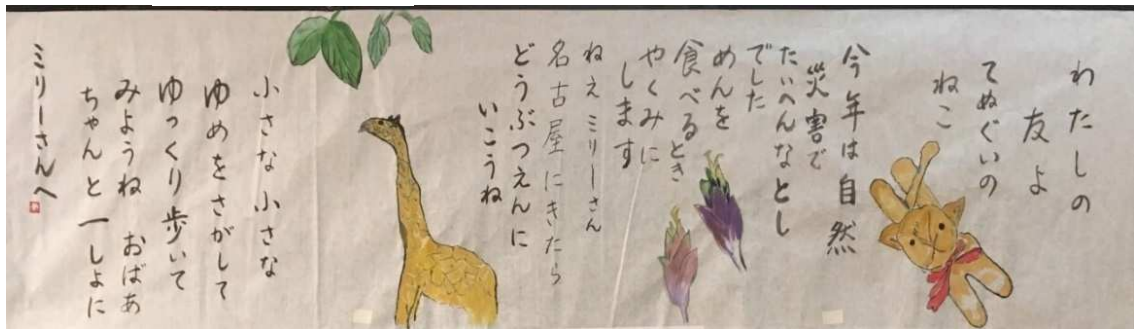 わたしの
友よ
てぬぐいの
ねこ
今年は自然
災害で
たいへんなとし
でした
めんを
食べるとき
やくみに
します
ねえミリーさん
名古屋にきたら
どうぶつえんに
いこうね
小さな小さな
ゆめをさがして
ゆっくり歩いて
みようね おばあ
ちゃんと一しよに
ミリーさんへ